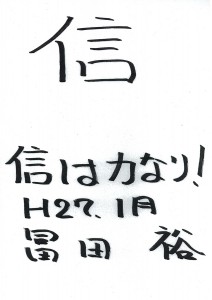 信
信は力なり!
H27.1月
冨田 裕